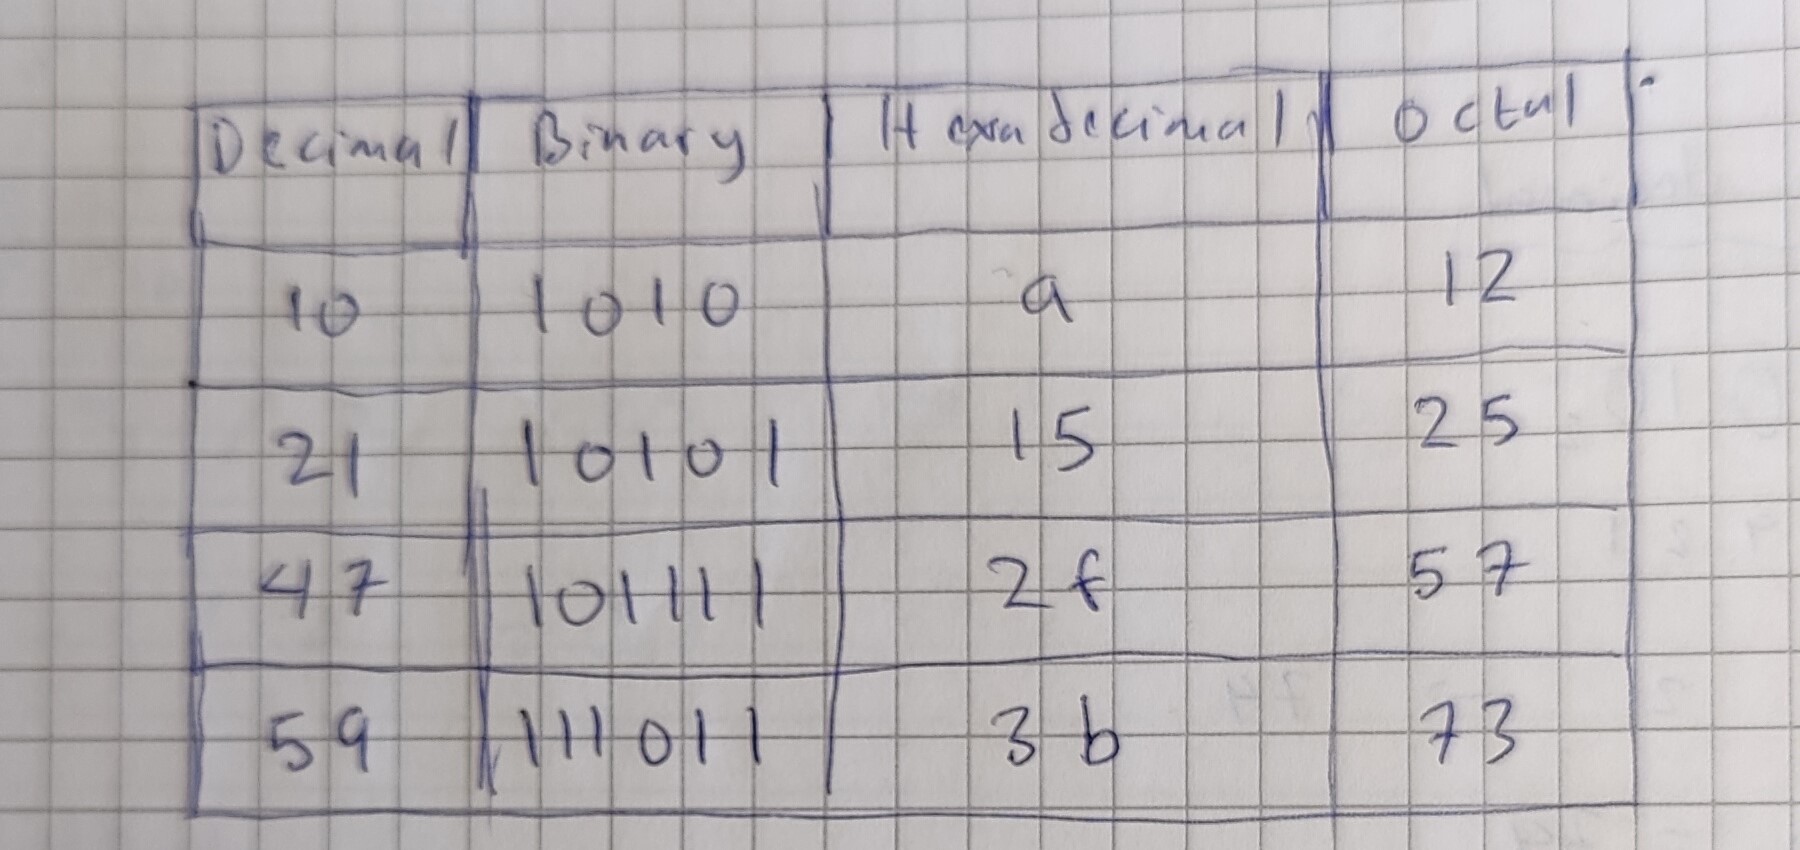 Decimal Binary Hexadecimal Octal
10 1010 a 12
21 10101 15 25
47 101111 2f 57
59 111011 3b 73